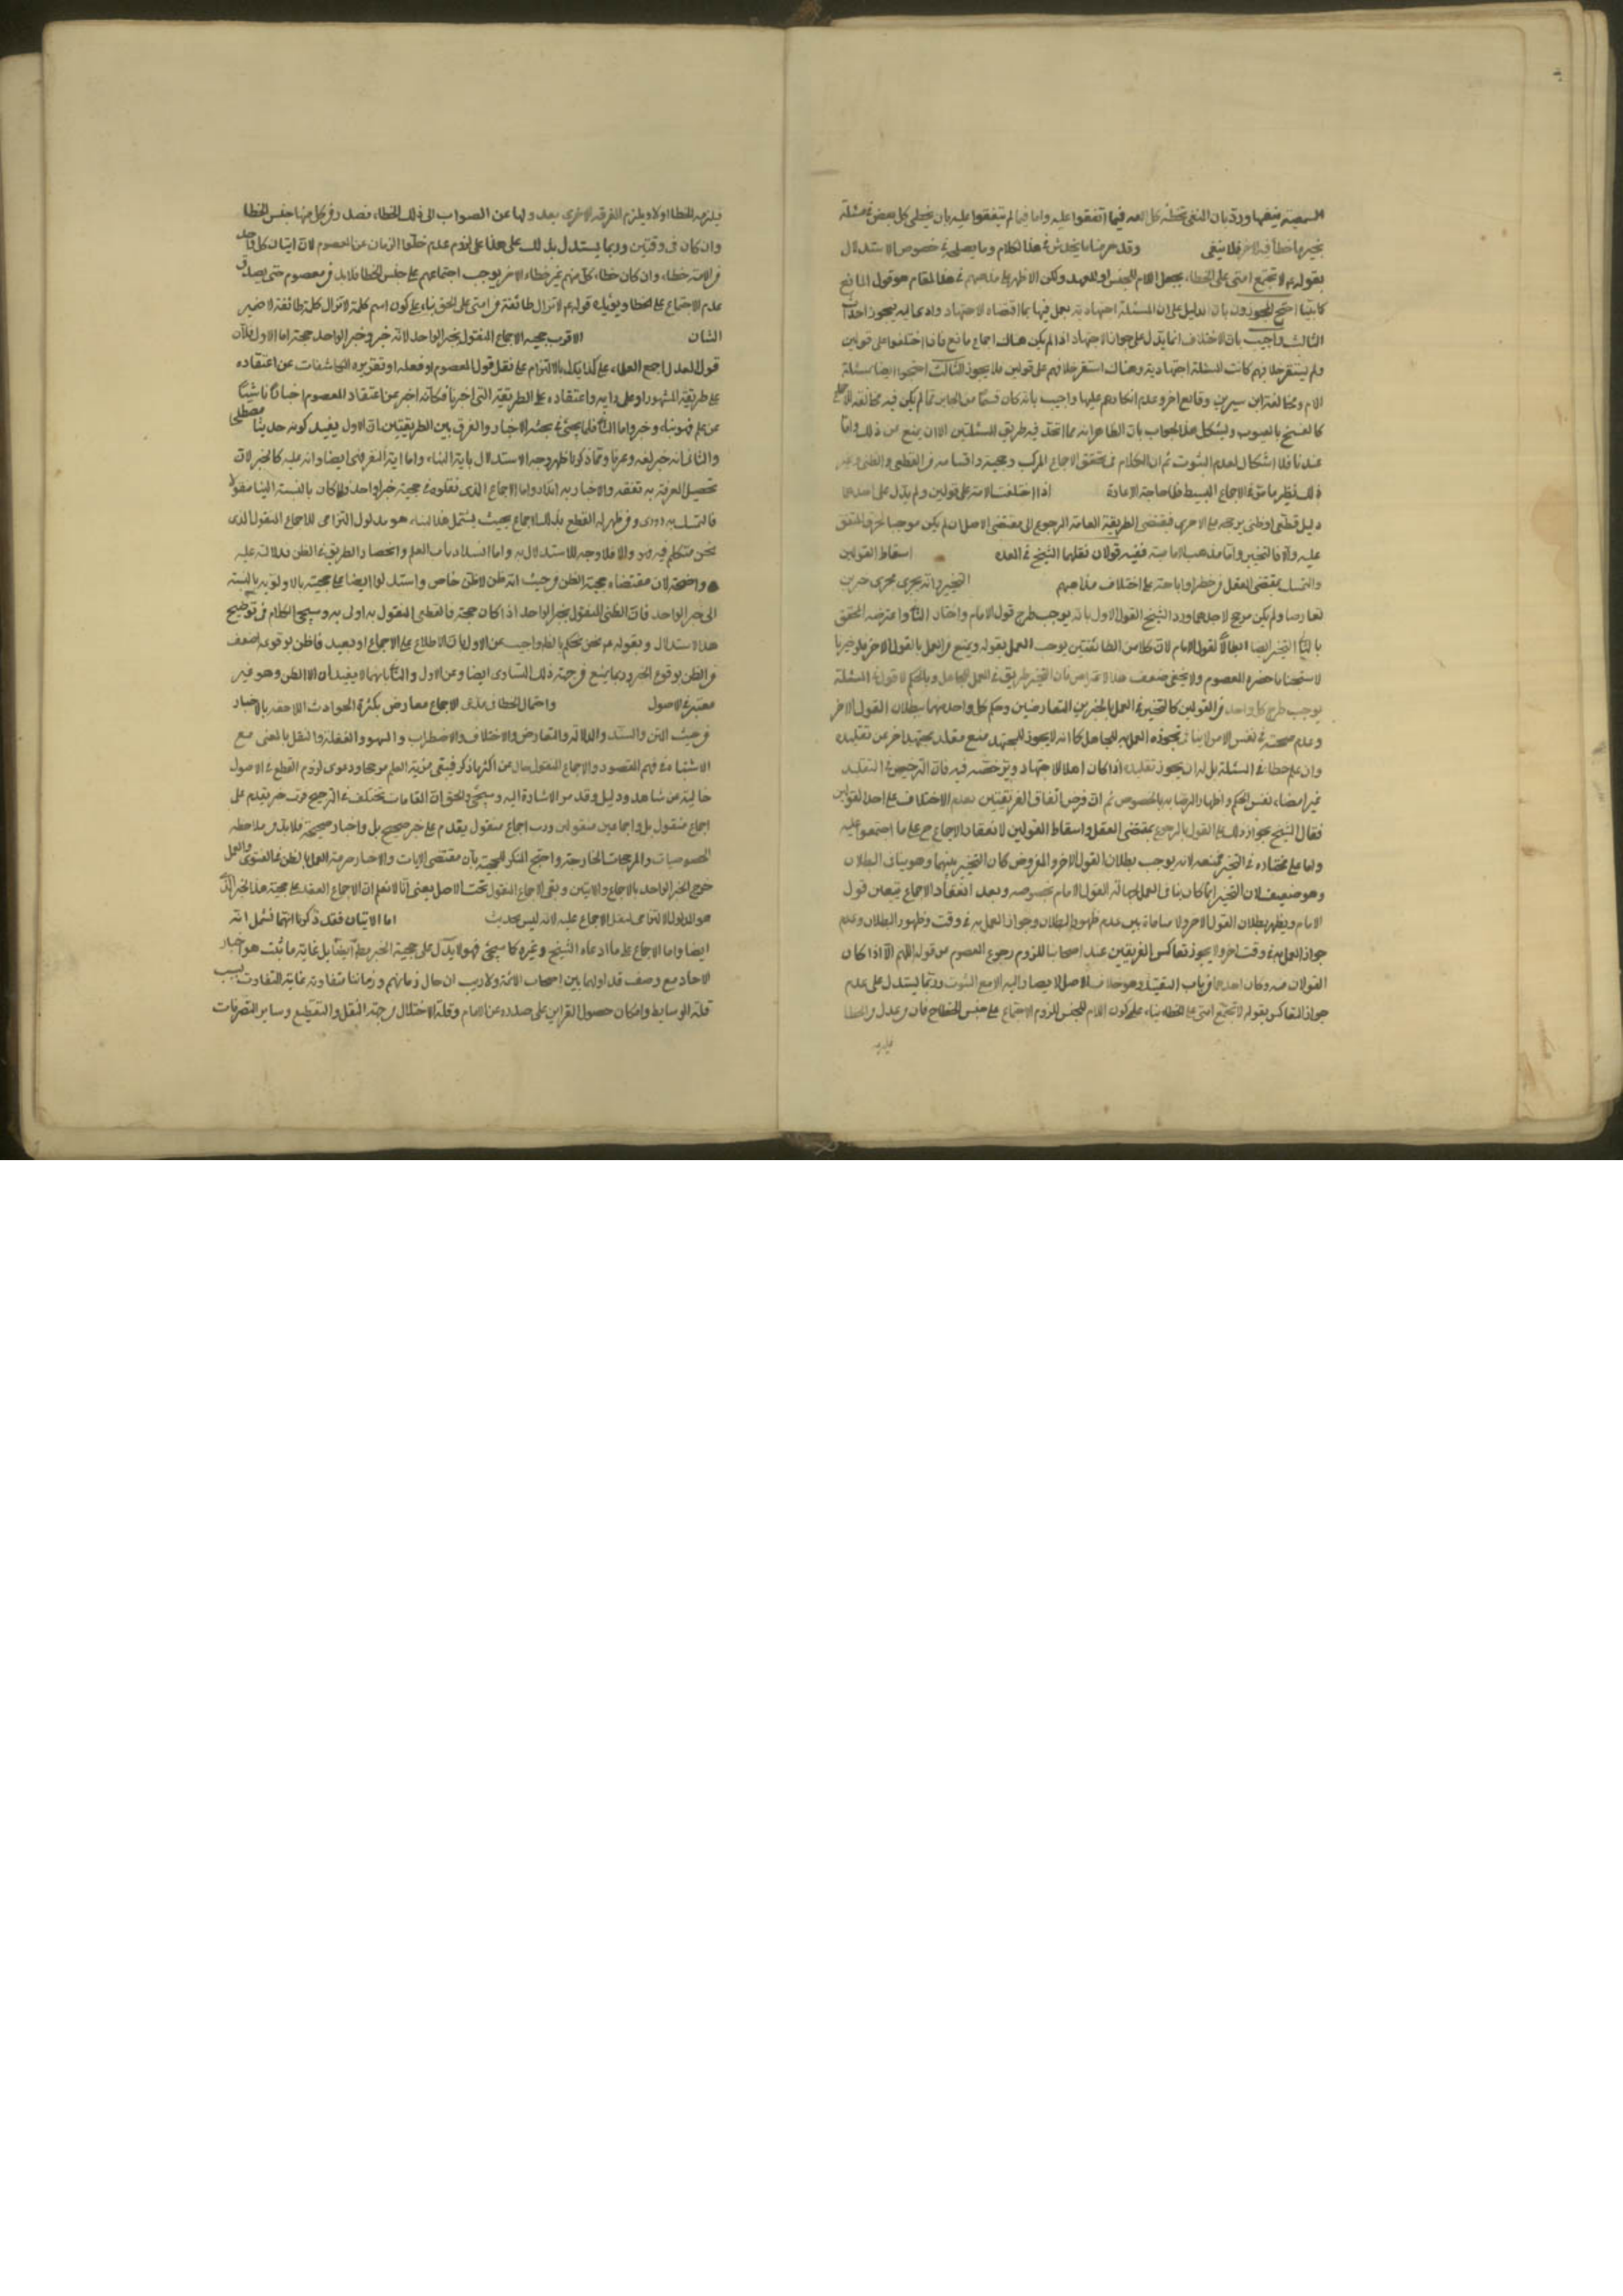 السمعية ينفيها ورد بان المنفى تخطئة كل الامة فيما اتفقوا عليه واما فيما لم يتفقوا عليه بان يخطى كل بعض فى مسئلة
غيرها خطأ فيه الاخر فلا ينفى وقد عرفنا ما يخدش فى هذا الكلام وما يصلى فى خصوص الاستدلال
بقوله لا تجتمع امتى على الخطاء بجعل اللام للجنس او للعهد ولكن الاظهر على مذهبهم فى هذا المقام هو قول المانع
كما بينا احتج المجوزون بان الدليل على ان المسئلة اجتهادية يعمل فيها بما اقتضاه الاجتهاد وادعا اليه فيجوز احداث
الثالث واجيب بان الاختلاف انما يدل على جواز الاجتهاد اذا لم يكن هناك اجماع مانع فاذا اختلفوا على قولين
ولم يستقر خلافهم كانت المسئلة اجتهادية وهناك استقر خلافهم على قولين فلا يجوز الثالث احتجوا ايضا بمسئلة
الام ومخالفة ابن سيرين وقايع اخر وعدم انكارهم عليها واجيب بانه كان قسما من الجايز مما لم يكن فيه مخالفة الاجماع
كالفسخ بالعيوب ويشكل هذا الجواب بان الظاهر انه مما اتحد فيه طريق المسئلتين الا ان يمنع من ذلك واما
عندنا فلا اشكال لعدم الثبوت ثم ان الكلام فى تحقق الاجماع المركب وحجيته واقسامه من القطعى والظنى وغير
ذلك نظير ما مر فى الاجماع البسيط فلا حاجة الى الاعادة اذا اختلفت الامة على قولين ولم يدل على احدهما
دليل قطعى او ظنى يرجحه على الاخرى فمقتضى الطريقة العامة الرجوع الى مقتضى الاصل ان لم يكن موجبا لخرق المتفق
عليه والا فالتخيير واما مذهب الامامية ففيه قولان نقلهما الشيخ فى العده اسقاط القولين
والتمسك بمقتضى العقل من حظر او اباحة على اختلاف مذاهبهم التخيير وانه يجرى مجرى خبرين
تعارضا ولم يكن مرجح لاحدهما ورد الشيخ القول الاول بانه يوجب طرح قول الامام واختار الثانى واعترضه المحقق
بان فى التخيير ايضا ابطالا لقول الامام لان كلا من الطائفتين يوجب العمل بقوله ويمنع من العمل بالقول الاخر فلو خيرنا
لاستبحنا ما حضره المعصوم ولا يخفى ضعف هذا الاعتراض فان التخيير طريق فى العمل للجاهل وبالحكم لا قول فى المسئلة
يوجب طرح كل واحد من القولين كالتخيير فى العمل بالخبرين المتعارضين وحكم كل واحد منهما ببطلان القول الاخر
وعدم صحته فى نفس الامر لا ينافى تجويزه العمل به للجاهل كما انه لا يجوز للمجتهد منع مقلد مجتهد اخر من تقليده
وان علم خطاه فى المسئلة بل له ان يجوز تقليده اذا كان اهلا للاجتهاد ويرخصه فيه فان الترخيص فى التقليد
غير امضاء نفس الحكم واظهار الرضا به بالخصوص ثم ان فرض اتفاق الفريقين بعدم الاختلاف على احد القولين
فقال الشيخ بجواز ذلك على القول بالرجوع بمقتضى العقل واسقاط القولين لانعقاد الاجماع ح على ما اجتمعوا عليه
واما على مختاره فى التخيير فمنعه لانه يوجب بطلان القول الاخر والمفروض كان التخيير بينهما وهو ينافى البطلان
وهو ضعيف لان التخيير انما كان بناء فى العمل لجهالة القول الامام بخصوصه وبعد انعقاد الاجماع يتعين قول
الامام ويظهر بطلان القول الاخر ولا منافاة بين عدم ظهور البطلان وجواز العمل به فى وقت وظهور البطلان وعدم
جواز العمل به فى وقت اخر ولا يجوز تعاكس الفريقين عند اصحابنا للزوم رجوع المعصوم عن قوله اللهم الا اذا كان
القولان منه وكان احدهما من باب التقية وهو خلاف الاصل لا يصار اليه الا مع الثبوت وربما يستدل على عدم
جواز التعاكس بقوله لا تجتمع امتى على الخطاء بناء على كون اللام للجنس للزوم الاجتماع على جنس الخطاء ح فان من عدل من الخطا
فيلزمه
فيلزمه الخطا اولا ويلزم الفرقة الاخرى بعدولها عن الصواب الى ذلك الخطاء فصدر من كل منها جنس الخطا
وان كان فى وقتين وربما يستدل بذلك على هذا على لزوم عدم خلو الزمان عن المعصوم لان اتيان كل واحد
من الامة خطاء وان كان خطاء كل منهم غير خطاء الاخر يوجب اجتماعهم على جنس الخطا فلا بد من معصوم حتى يصدق
عدم الاجتماع على الخطا ويؤيده قوله لا تزال طائفة من امتى على الحق بناء على كون اسم كلمة لا تزال كلمة طائفة لا ضمير
الشان الاقرب حجية الاجماع المنقول بخبر الواحد لانه خبر وخبر الواحد حجة اما الاول فلان
قول العدل اجمع العلماء على كذا يدل بالالتزام على نقل قول المعصوم او فعله او تقريره الكاشفات عن اعتقاده
على طريقة المشهور او على رايه واعتقاده على الطريقة التى اخرنا فكانه اخبر عن اعتقاد المعصوم اخبارا ناشيا
عن علم فهو نباء وخبر واما الثانى فلما يجئ فى بحث الاخبار والفرق بين الطريقتين ان الاول يفيد كونه حديثا مصطلحا
والثانى انه خبر لغة وعرفا ومما ذكرنا ظهر وجه الاستدلال باية النباء واما اية النفر فهى ايضا دالة عليه كالخبر لان
تحصيل المعرفة به تفقه والاخبار به انذار واما الاجماع الذى نقلوه فى حجية خبر الواحد فلو كان بالنسبة الينا منقولا
فالتمسك به دورى ومن ظهر له القطع بذلك الاجماع بحيث يشتمل هذا النباء هو مدلول التزامى للاجماع المنقول الذى
نحن متكلم فيه فهو والا فلا وجه للاستدلال به واما انسداد باب العلم وانحصار الطريق فى الظن فدلالته عليه
واضحة لان مقتضاه حجية الظن من حيث انه ظن لا ظن خاص واستدلوا ايضا على حجيته بالاولوية بالنسبة
الى خبر الواحد فان الظنى المنقول بخبر الواحد اذا كان حجة فالقطعى المنقول به اولى به وسيجئ الكلام فى توضيح
هذا الاستدلال وبقوله نحن نحكم بالظاهر واجيب عن الاول بان الاطلاع على الاجماع او بعيد فالظن بوقوعه اضعف
من الظن بوقوع الخبر وربما يمنع من جهة ذلك التساوى ايضا وعن الاول والثانى بانهما لا يفيدان الا الظن وهو غير
معتبر فى الاصول واحتمال الخطا فى الاجماع معارض بكثرة الحوادث اللاحقة بالاخبار
من حيث المتن والسند والدلالة والتعارض والاختلاف والاضطراب والسهو والغفلة والنقل بالمعنى مع
الاشتباه فى فهم المقصود والاجماع المنقول خال عن اكثر ما ذكر فيبقى مزية العلم مرجحا ودعوى لزوم القطع فى الاصول
خالية عن شاهد ودليل وقد مر الاشارة اليه وسيجئ والحق ان المقامات تختلف فى الترجيح فرب خبر يقدم على
اجماع منقول بل واجماعين منقولين ورب اجماع منقول يقدم على خبر صحيح بل واخبار صحيحة فلا بد من ملاحظة
الخصوصيات والمرجحات الخارجة واحتج المنكر للحجية بان مقتضى الايات والاخبار حرمة العمل بالظن فى الفتوى والعمل
خرج الخبر الواحد بالاجماع والايتين وبقى الاجماع المنقول تحت الاصل يعنى انا لا نعلم ان الاجماع انعقد على حجية هذا الخبر الذى
هو المدلول الالتزامى لنقل الاجماع عليه لانه ليس بحديث اما الايتان فقد ذكرنا انهما تشمل انه
ايضا واما الاجماع على ما ادعاه الشيخ وغيره كما سيجئ فهو لا يدل على حجية الخبر مطلقا ايضا بل غاية ما ثبت هو اخبار
الاحاد مع وصف تداولها بين اصحاب الائمة ولا ريب ان حال زمانهم وزماننا متفاوتة غاية التفاوت بسبب
قلة الوسايط وامكان حصول القراين على صدوره عن الامام وقلة الاختلال من جهة النقل والتقطيع وساير التصرفات